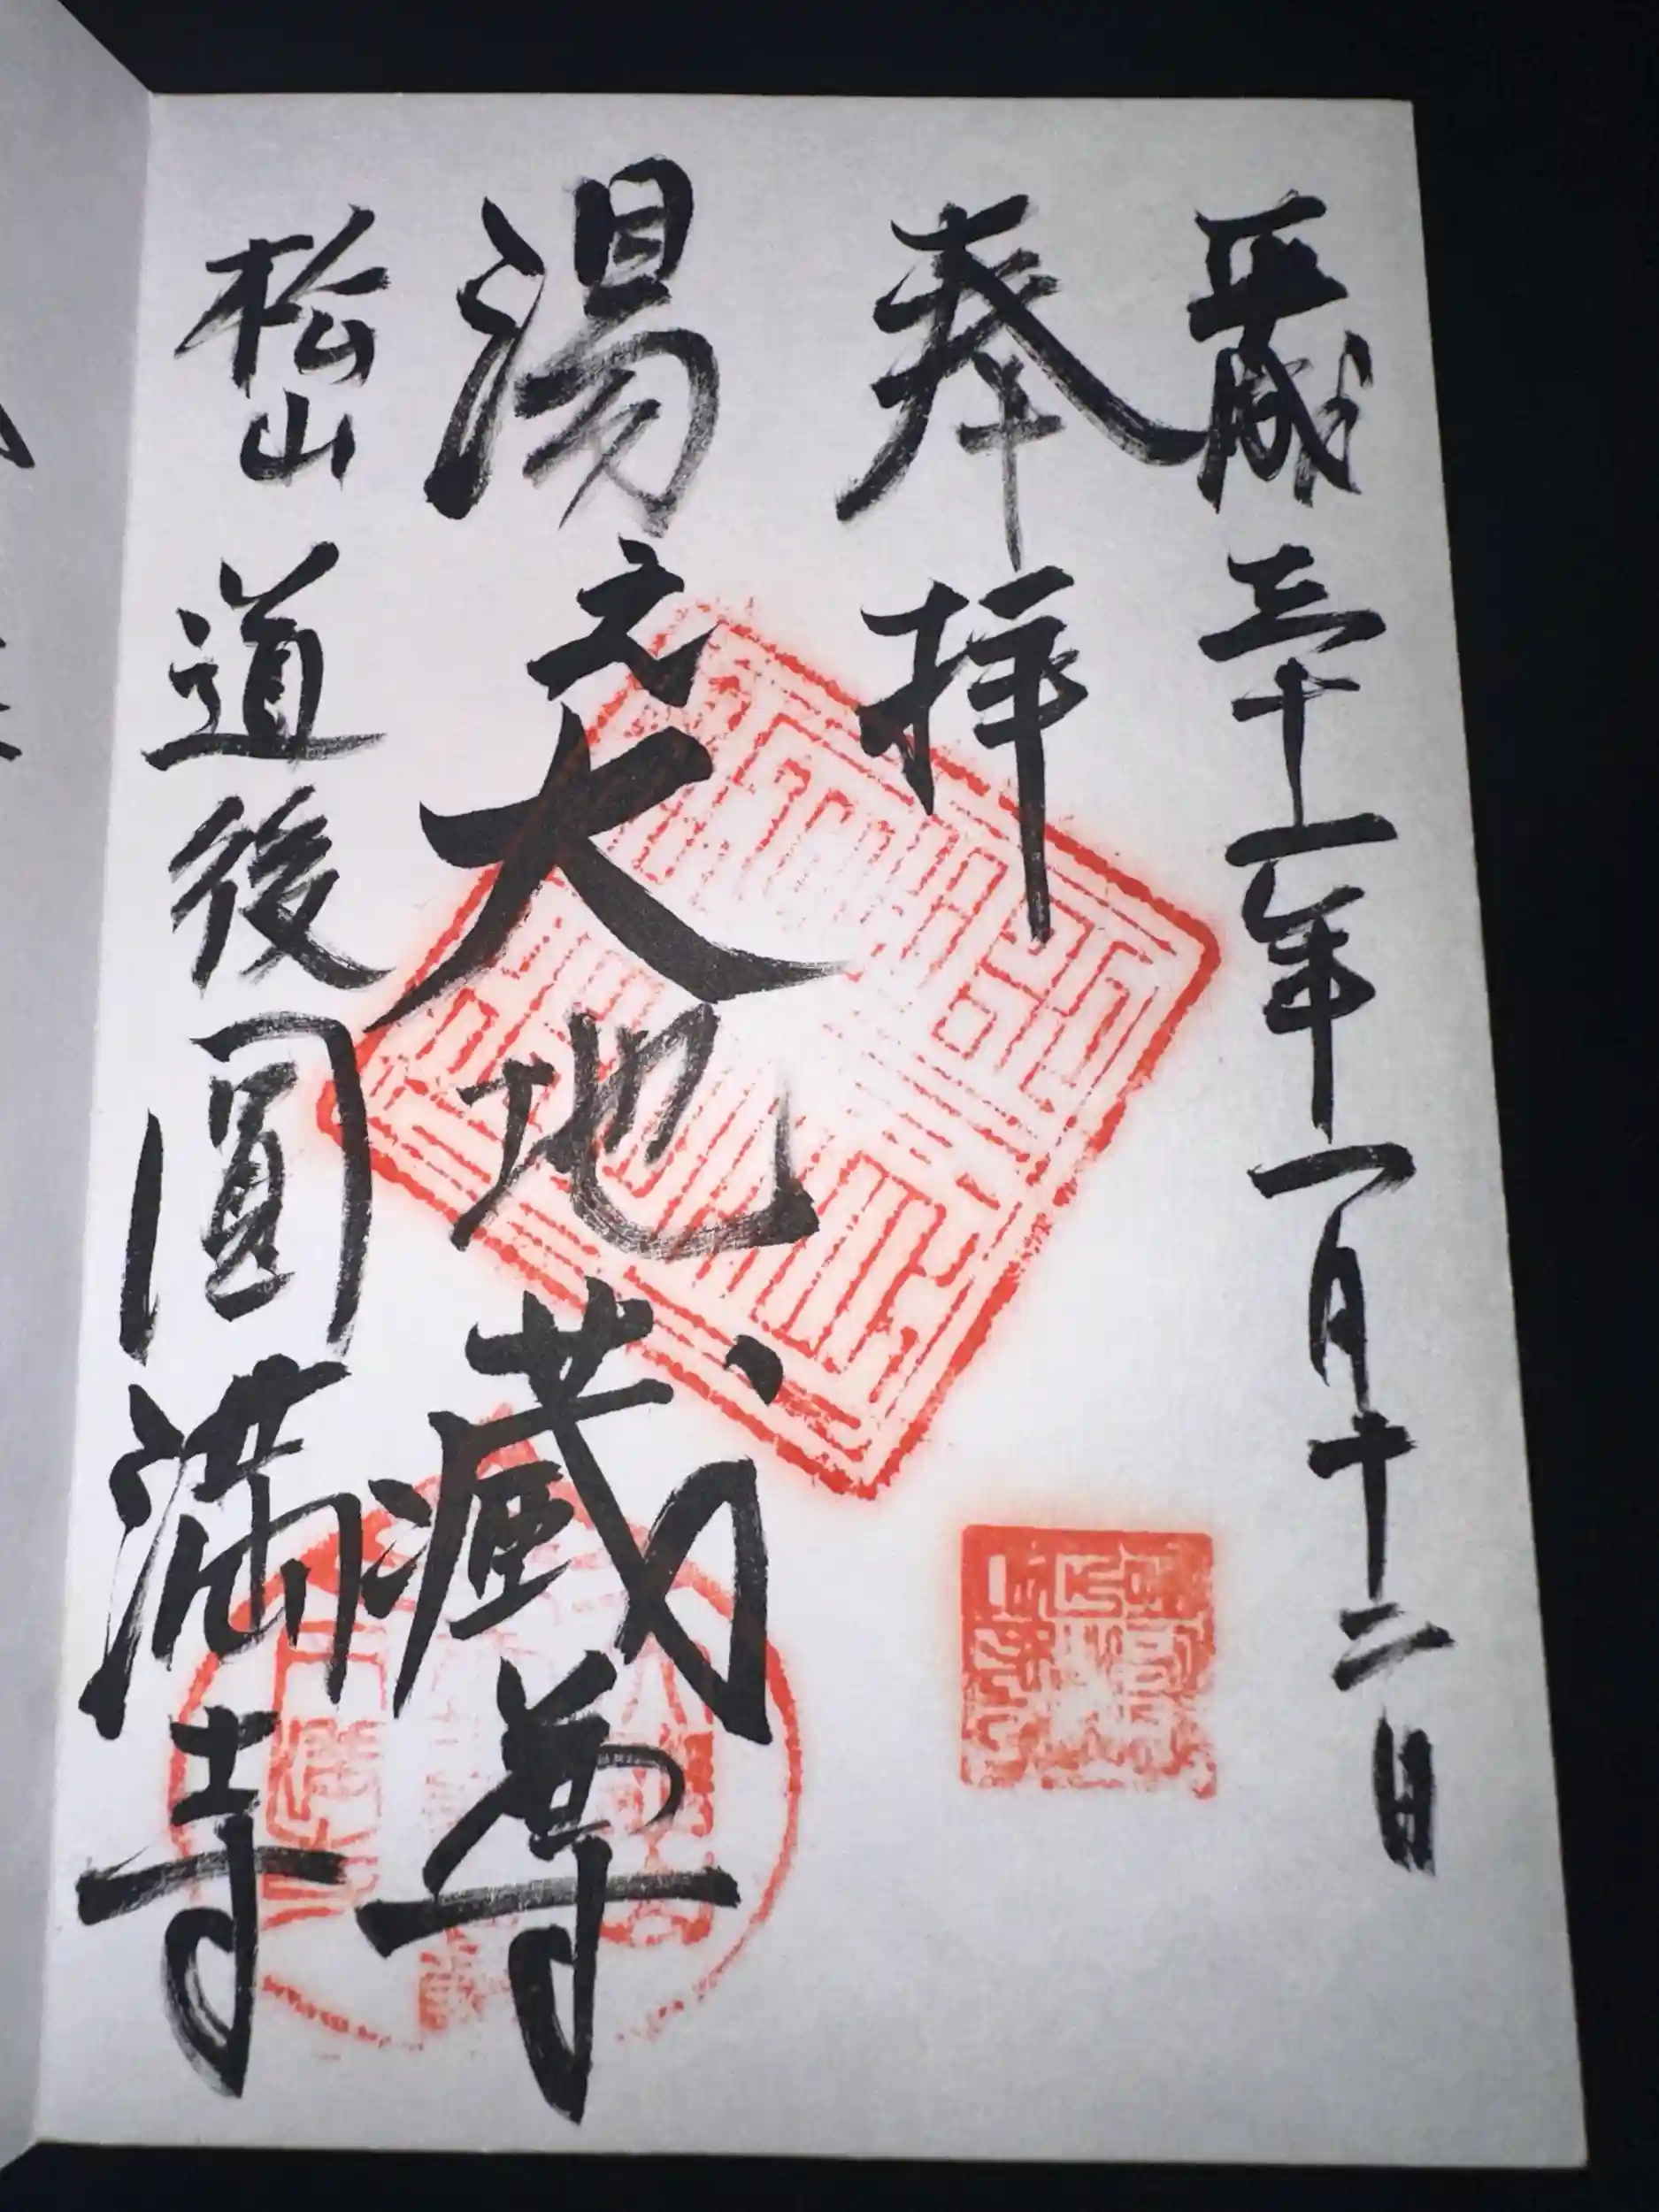 平成三十一年一月十二日
奉拝
湯之大地藏尊
松山道後圓満寺